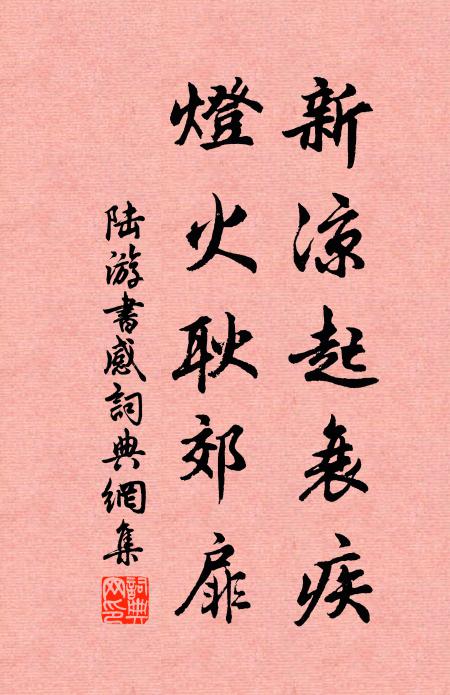 新涼起衰疾
燈火耿郊扉
陆游書感詞典網集
詞典
网印